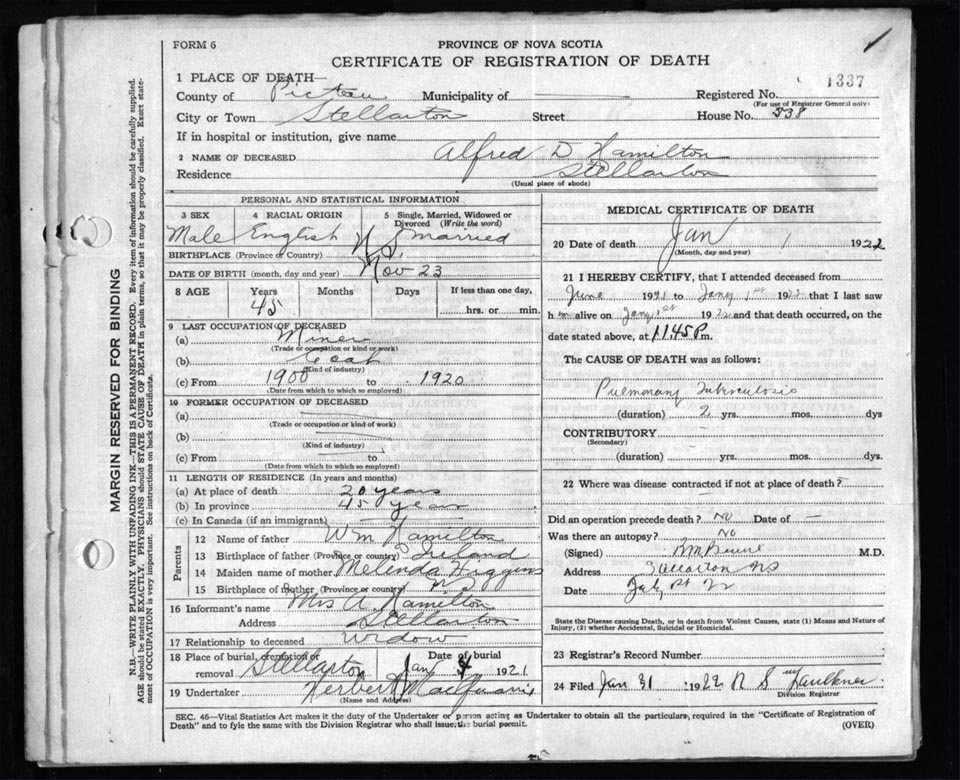 FORM 6
PROVINCE OF NOVA SCOTIA
CERTIFICATE OF REGISTRATION OF DEATH
1337
1 PLACE OF DEATH—
County of Pictou Municipality of Registered No.
(For use of Registrar General only)
City or Town Stellarton Street House No. 338
If in hospital or institution, give name
2 NAME OF DECEASED Alfred D Hamilton
Residence Stellarton
(Usual place of abode)
PERSONAL AND STATISTICAL INFORMATION
3 SEX 4 RACIAL ORIGIN 5 Single, Married, Widowed or Divorced (Write the word)
Male English married
BIRTHPLACE (Province or Country) N S.
DATE OF BIRTH (month, day and year) Nov 23
8 AGE Years Months Days If less than one day,
45 hrs. or min.
9 LAST OCCUPATION OF DECEASED
(a) Miner
(Trade or occupation or kind of work)
(b) Coal
(Kind of industry)
(c) From 1900 to 1920
(Date from which to which so employed)
10 FORMER OCCUPATION OF DECEASED
(a)
(Trade or occupation or kind of work)
(b)
(Kind of industry)
(c) From
(Date from which to which so employed)
11 LENGTH OF RESIDENCE (In years and months)
(a) At place of death 20 years
(b) In province 45 years
(c) In Canada (if an immigrant)
Parents
12 Name of father Wm Hamilton
13 Birthplace of father (Province or country) Ireland
14 Maiden name of mother Melinda Higgins
15 Birthplace of mother (Province or country) N S
16 Informant's name Mrs A. Hamilton
Address Stellarton
17 Relationship to deceased Widow
18 Place of burial, cremation or removal Stellarton Date of burial Jan 4 1921
19 Undertaker Herbert
(Name and Address)
MEDICAL CERTIFICATE OF DEATH
20 Date of death Jan 1 1922
(Month, day and year)
21 I HEREBY CERTIFY, that I attended deceased from
June 1921 to Jany 1st 1922 that I last saw
him alive on Jany 1st 1922 and that death occurred, on
date stated above, at 11.45 P.m.
The CAUSE OF DEATH was as follows:
Pulmonary Tuberculosis
(duration) 2 yrs. mos. dys
CONTRIBUTORY
(Secondary)
(duration) yrs. mos. dys.
22 Where was disease contracted if not at place of death?
Did an operation precede death? No Date of —
Was there an autopsy? No
(Signed) M.D.
Address Stellarton NS
Date
State the Disease causing Death, or in death from Violent Causes, state (1) Means and Nature of
Injury, (2) whether Accidental, Suicidal or Homicidal.
23 Registrar's Record Number
24 Filed Jan 31 1922 N S Faulkner
Division Registrar
SEC. 46—Vital Statistics Act makes it the duty of the Undertaker or person acting as Undertaker to obtain all the particulars, required in the "Certificate of Registration of
Death" and to fyle the same with the Division Registrar who shall issue the burial permit. (OVER)
MARGIN RESERVED FOR BINDING
N.B.—WRITE PLAINLY WITH UNFADING INK—THIS IS A PERMANENT RECORD. Every item of information should be carefully supplied.
AGE should be stated EXACTLY. PHYSICIANS should STATE CAUSE OF DEATH in plain terms, so that it may be properly classified. Exact state-
ment of OCCUPATION is very important. See instructions on back of Certificate.